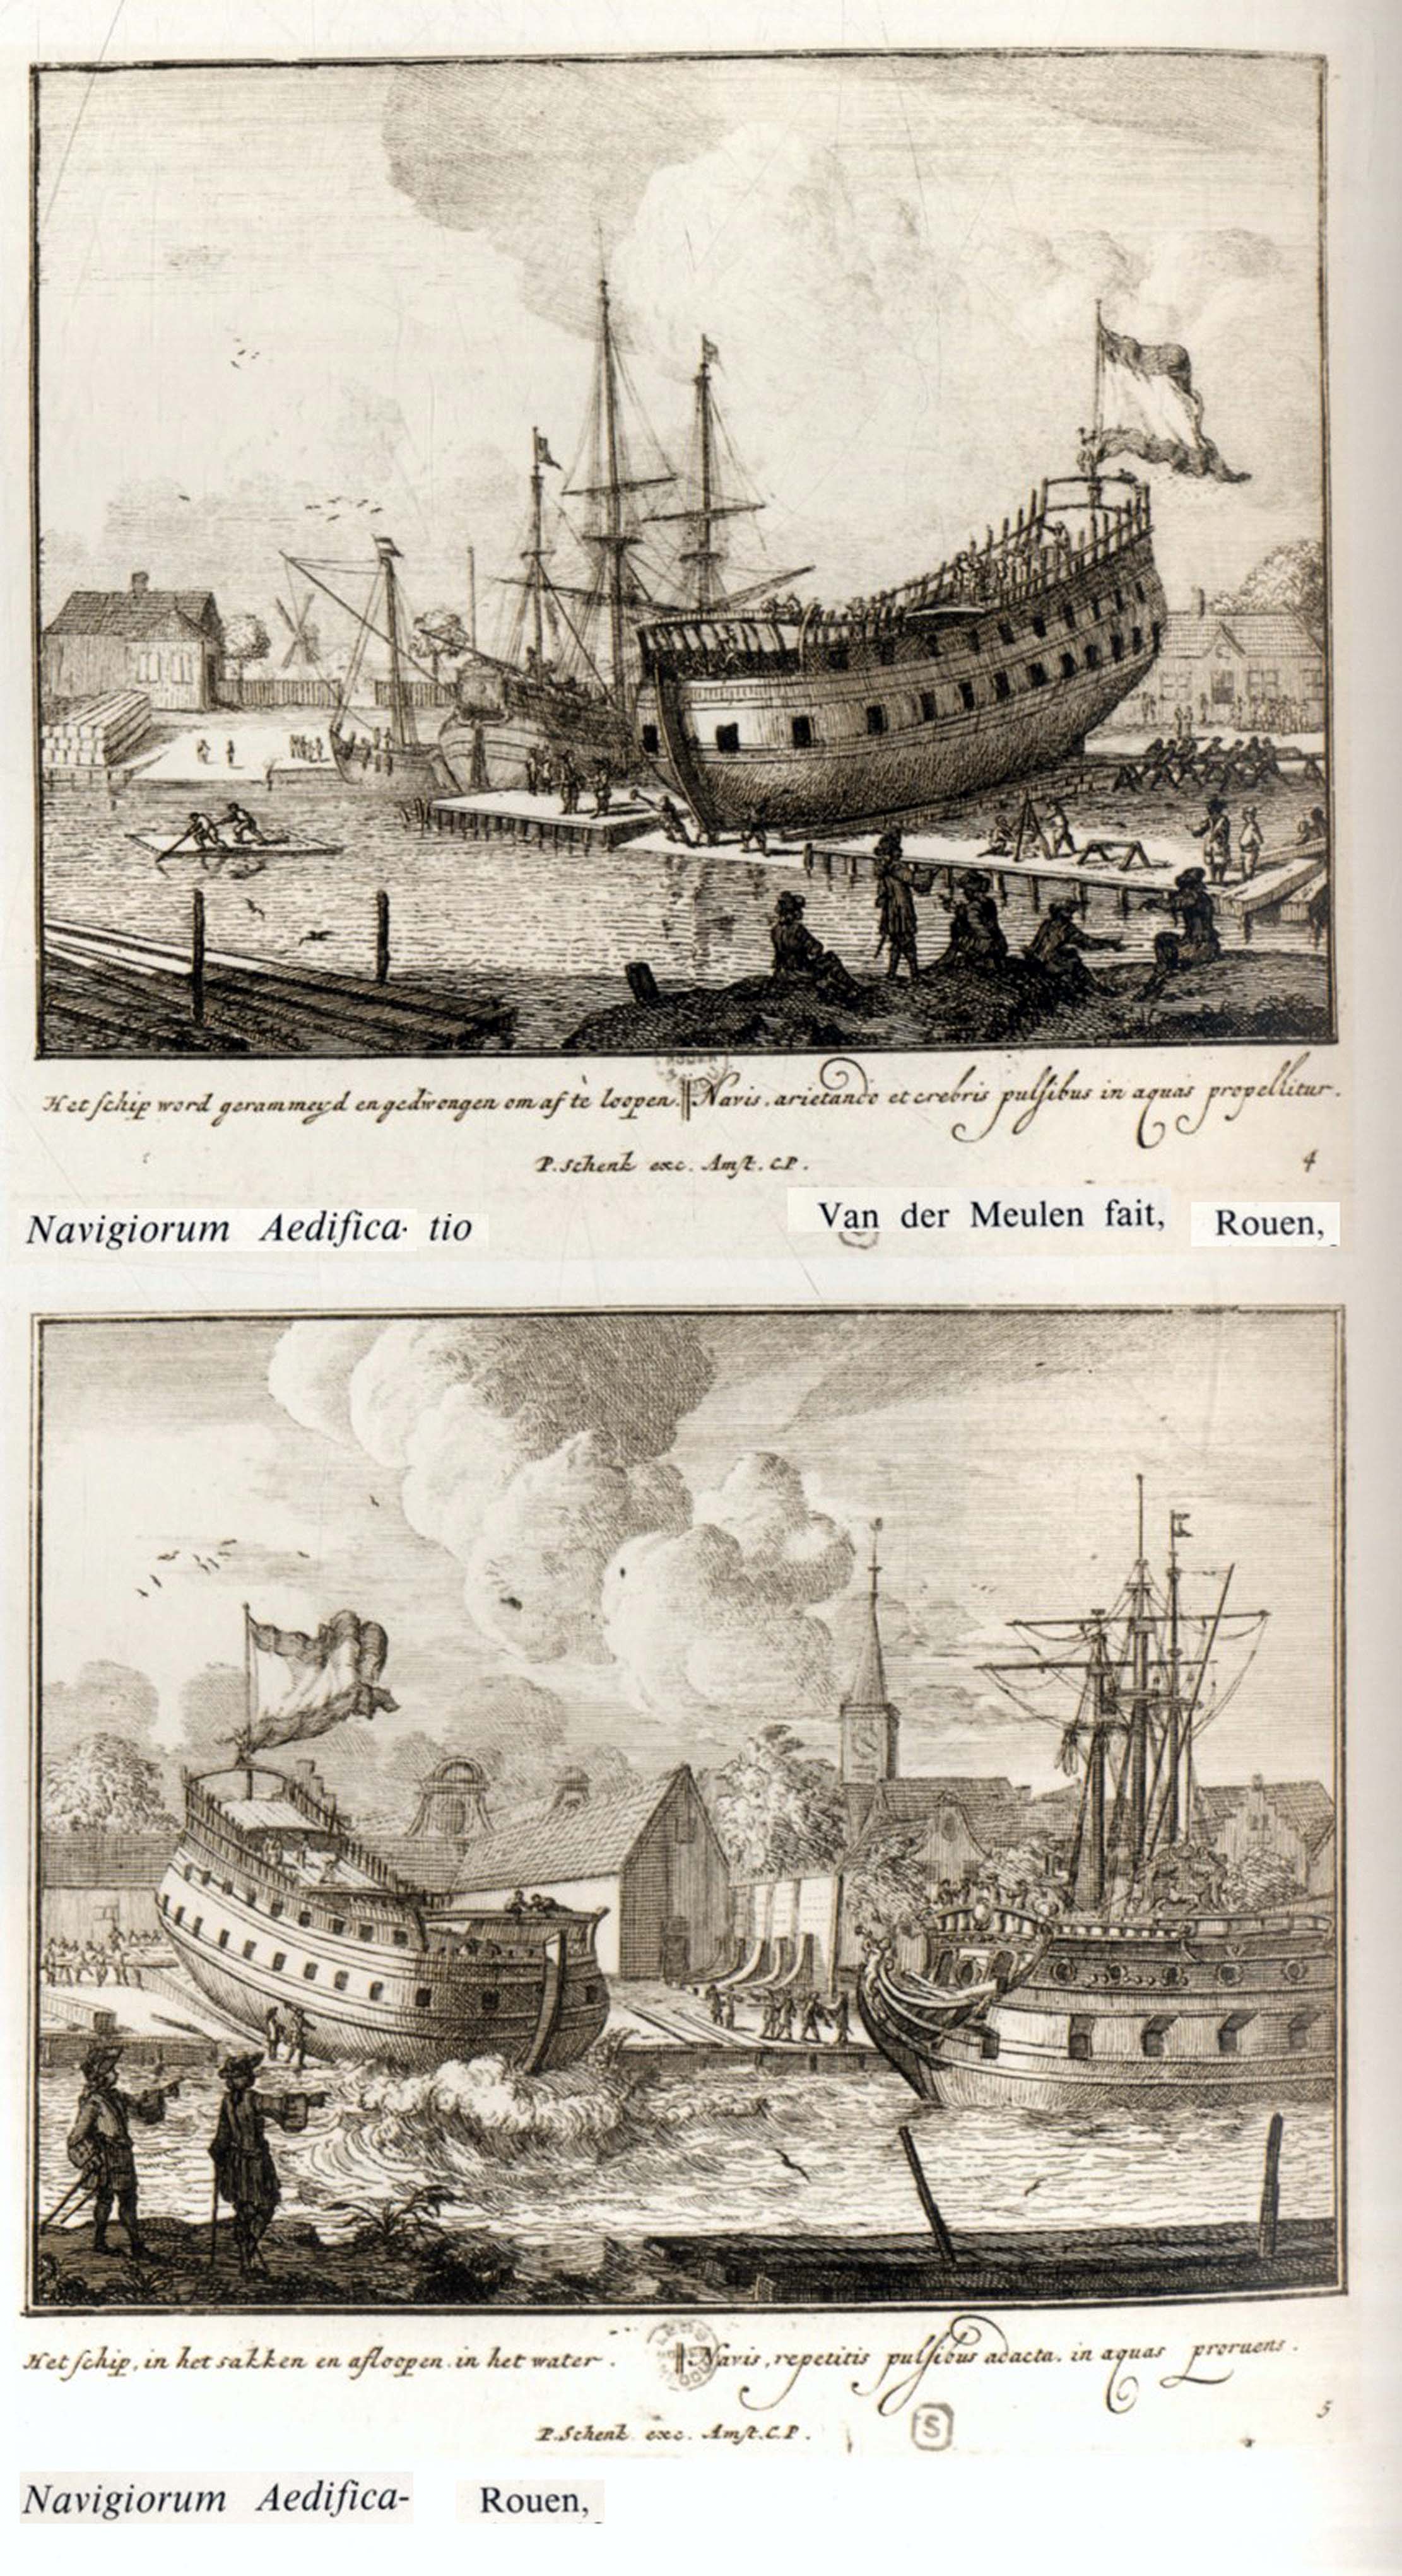 Het schip word gerammeyd en gedwongen om af te loopen. Navis. arietando et crebris pulsibus in aquas propellitur.
P. Schenk exc. Amst. C.P. 4
Navigiorum Aedifica- tio Van der Meulen fait, Rouen,
Het schip, in het sakken en afloopen in het water. Navis, repetitis pulsibus adacta. in aquas proruens.
5
P. Schenk exc. Amst. C.P. S
Navigiorum Aedifica- Rouen,